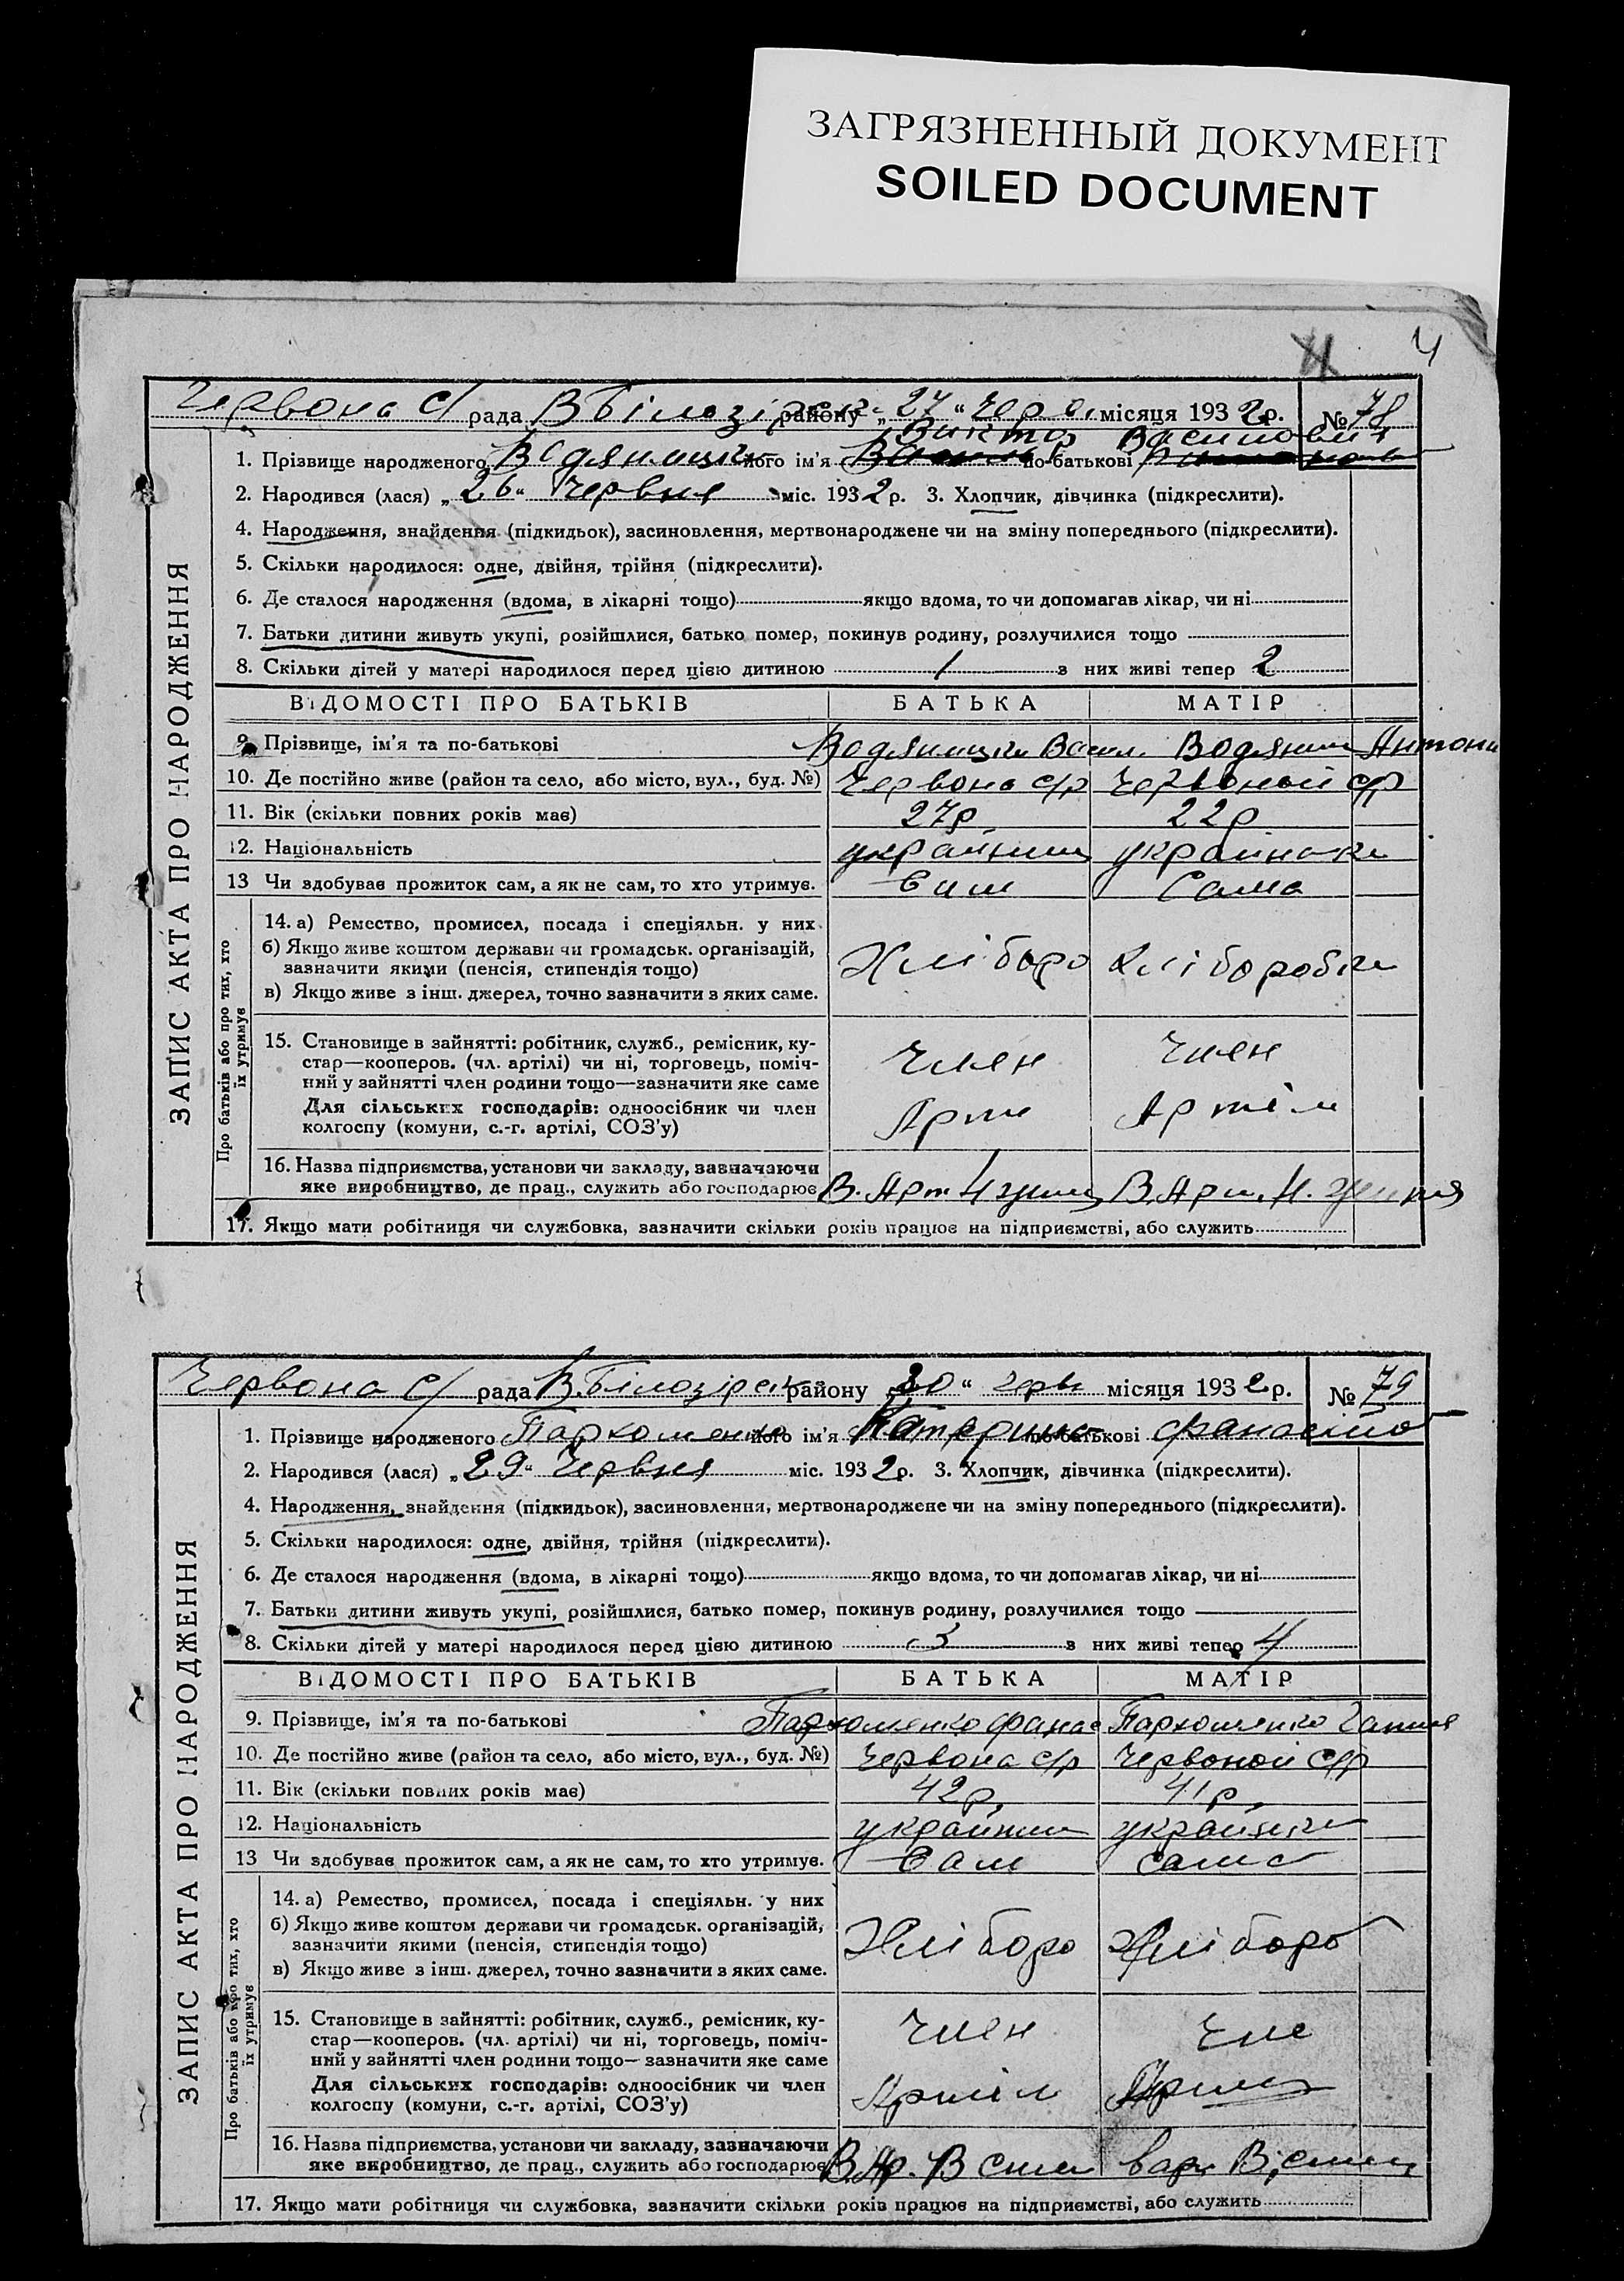 ЗАГРЯЗНЕННЫЙ ДОКУМЕНТ
SOILED DOCUMENT
4
Червона с/ рада В Білозірск району „27“ черв. місяця 1932 р. № 78
Виктор Василович
1. Прізвище народженого Водяницьки його ім'я по-батькові
2. Народився (лася) „26“ Червня міс. 1932 р. 3. Хлопчик, дівчинка (підкреслити).
4. Народження, знайдення (підкидьок), засиновлення, мертвонароджене чи на зміну попереднього (підкреслити).
5. Скільки народилося: одне, двійня, трійня (підкреслити).
6. Де сталося народження (вдома, в лікарні тощо) якщо вдома, то чи допомагав лікар, чи ні
7. Батьки дитини живуть укупі, розійшлися, батько помер, покинув родину, розлучилися тощо
8. Скільки дітей у матері народилося перед цією дитиною 1 з них живі тепер 2
ВІДОМОСТІ ПРО БАТЬКІВ БАТЬКА МАТІР
9. Прізвище, ім'я та по-батькові Водяницьки Васил. Водяниц Антони
10. Де постійно живе (район та село, або місто, вул., буд. №) Червона с/р Червоной с/р
11. Вік (скільки повних років має) 27р 22р
12. Національність україниц українски
13 Чи здобував прожиток сам, а як не сам, то хто утримує. Сам Сама
14. а) Ремество, промисел, посада і спеціяльн. у них
б) Якщо живе коштом держави чи громадськ. організацій,
зазначити якими (пенсія, стипендія тощо) Хліборо Хлiборобки
в) Якщо живе з інш. джерел, точно зазначити з яких саме.
15. Становище в зайнятті: робітник, служб., ремісник, ку-
стар—кооперов. (чл. артілі) чи ні, торговець, поміч- Член Член
ний у зайнятті член родини тощо—зазначити яке саме
Для сільських господарів: одноосібник чи член Арти Артіли
колгоспу (комуни, с.-г. артілі, СОЗ'у)
16. Назва підприємства, установи чи закладу, зазначаючи
яке виробництво, де прац., служить або господарює В. Арт. Н В. Арт. Н.
17. Якщо мати робітниця чи службовка, зазначити скільки років працює на підприємстві, або служить
ЗАПИС АКТА ПРО НАРОДЖЕННЯ
Про батьків або про тих, хто
їх утримує
Червона с/ рада В. Білозірск району „30“ черв місяця 1932 р. № 79
1. Прізвище народженого Пархоменко його ім'я Катерина по-батькові
2. Народився (лася) „29“ Червня міс. 1932 р. 3. Хлопчик, дівчинка (підкреслити).
4. Народження, знайдення (підкидьок), засиновлення, мертвонароджене чи на зміну попереднього (підкреслити).
5. Скільки народилося: одне, двійня, трійня (підкреслити).
6. Де сталося народження (вдома, в лікарні тощо) якщо вдома, то чи допомагав лікар, чи ні
7. Батьки дитини живуть укупі, розійшлися, батько помер, покинув родину, розлучилися тощо
8. Скільки дітей у матері народилося перед цією дитиною 3 з них живі тепер 4
ВІДОМОСТІ ПРО БАТЬКІВ БАТЬКА МАТІР
9. Прізвище, ім'я та по-батькові Пархоменко Фанас Пархоменко Ганна
10. Де постійно живе (район та село, або місто, вул., буд. №) Червона с/р Червоной с/р
11. Вік (скільки повних років має) 42р. 41р.
12. Національність україниц україньки
13 Чи здобував прожиток сам, а як не сам, то хто утримує. Сам сама
14. а) Ремество, промисел, посада і спеціяльн. у них
б) Якщо живе коштом держави чи громадськ. організацій,
зазначити якими (пенсія, стипендія тощо) Хліборо Хлібороб
в) Якщо живе з інш. джерел, точно зазначити з яких саме.
15. Становище в зайнятті: робітник, служб., ремісник, ку-
стар—кооперов. (чл. артілі) чи ні, торговець, поміч- Член Чле
ний у зайнятті член родини тощо—зазначити яке саме
Для сільських господарів: одноосібник чи член Артіли
колгоспу (комуни, с.-г. артілі, СОЗ'у)
16. Назва підприємства, установи чи закладу, зазначаючи
яке виробництво, де прац., служить або господарює В. Ар. В
17. Якщо мати робітниця чи службовка, зазначити скільки років працює на підприємстві, або служить
ЗАПИС АКТА ПРО НАРОДЖЕННЯ
Про батьків або про тих, хто
їх утримує